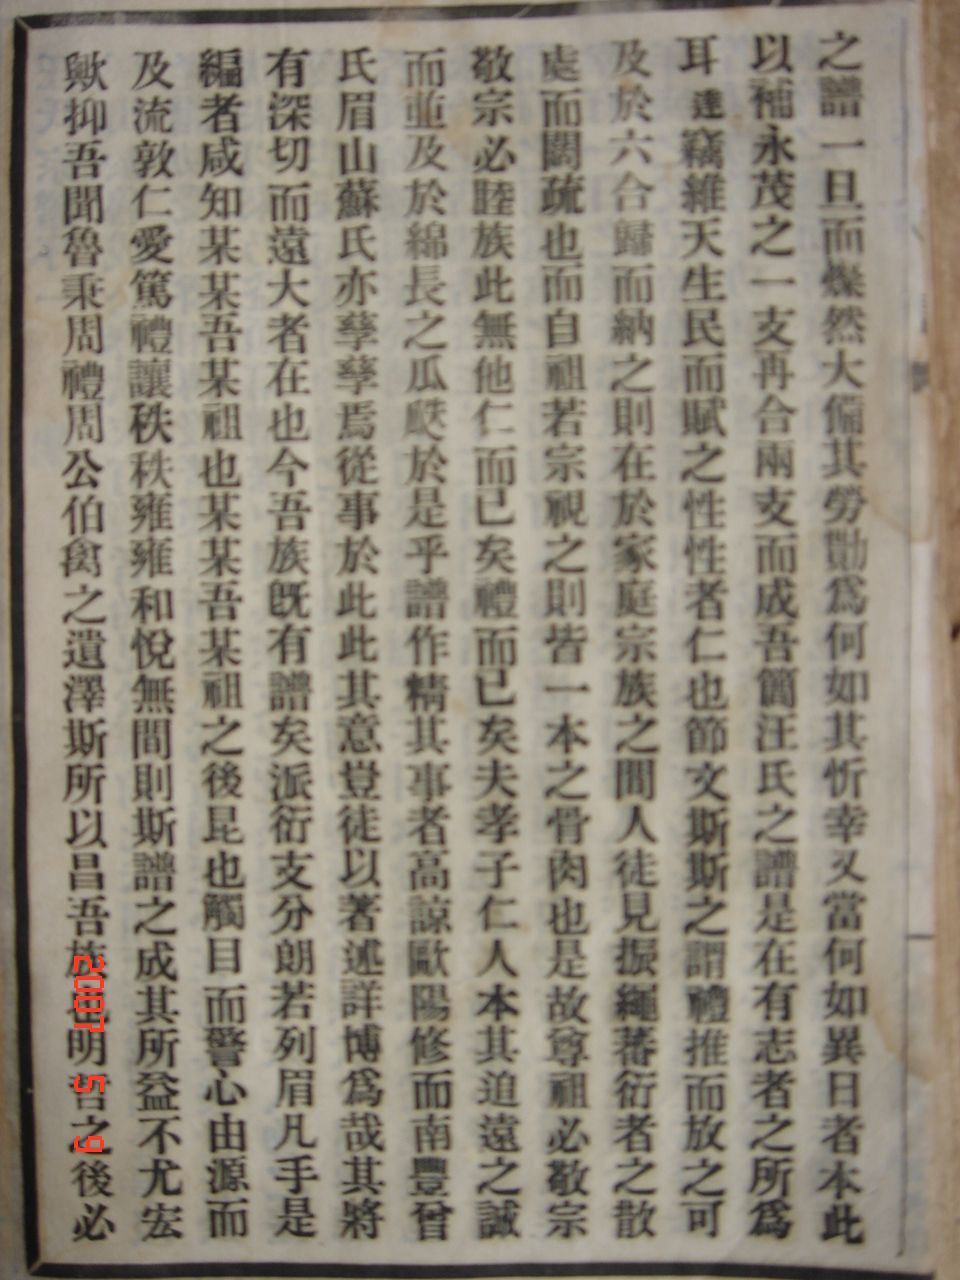 之譜一旦而燦然大備其勞勩爲何如其忻幸又當何如異日者本此
以補永茂之一支再合兩支而成吾箇汪氏之譜是在有志者之所爲
耳達竊維天生民而賦之性性者仁也節文斯斯之謂禮推而放之可
及於六合歸而納之則在於家庭宗族之間人徒見振繩蕃衍者之散
處而闊疏也而自祖若宗視之則皆一本之骨肉也是故尊祖必敬宗
敬宗必睦族此無他仁而已矣禮而已矣夫孝子仁人本其追遠之誠
而並及於綿長之瓜瓞於是乎譜作精其事者高諒歐陽修而南豐曾
氏眉山蘇氏亦孳孳焉從事於此此其意豈徒以著述詳博爲哉其將
有深切而遠大者在也今吾族旣有譜矣派衍支分朗若列眉凡手是
編者咸知某某吾某祖也某某吾某祖之後昆也觸目而警心由源而
及流敦仁愛篤禮讓秩秩雍雍和悅無間則斯譜之成其所益不尤宏
歟抑吾聞魯秉周禮周公伯禽之遺澤斯所以昌吾族明之後必
2007 5 9